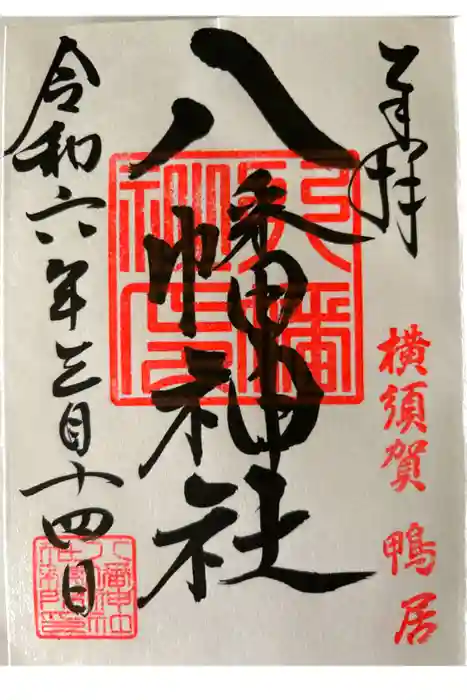 奉拝
横須賀 鴨居
八幡神社
令和六年三月十四日